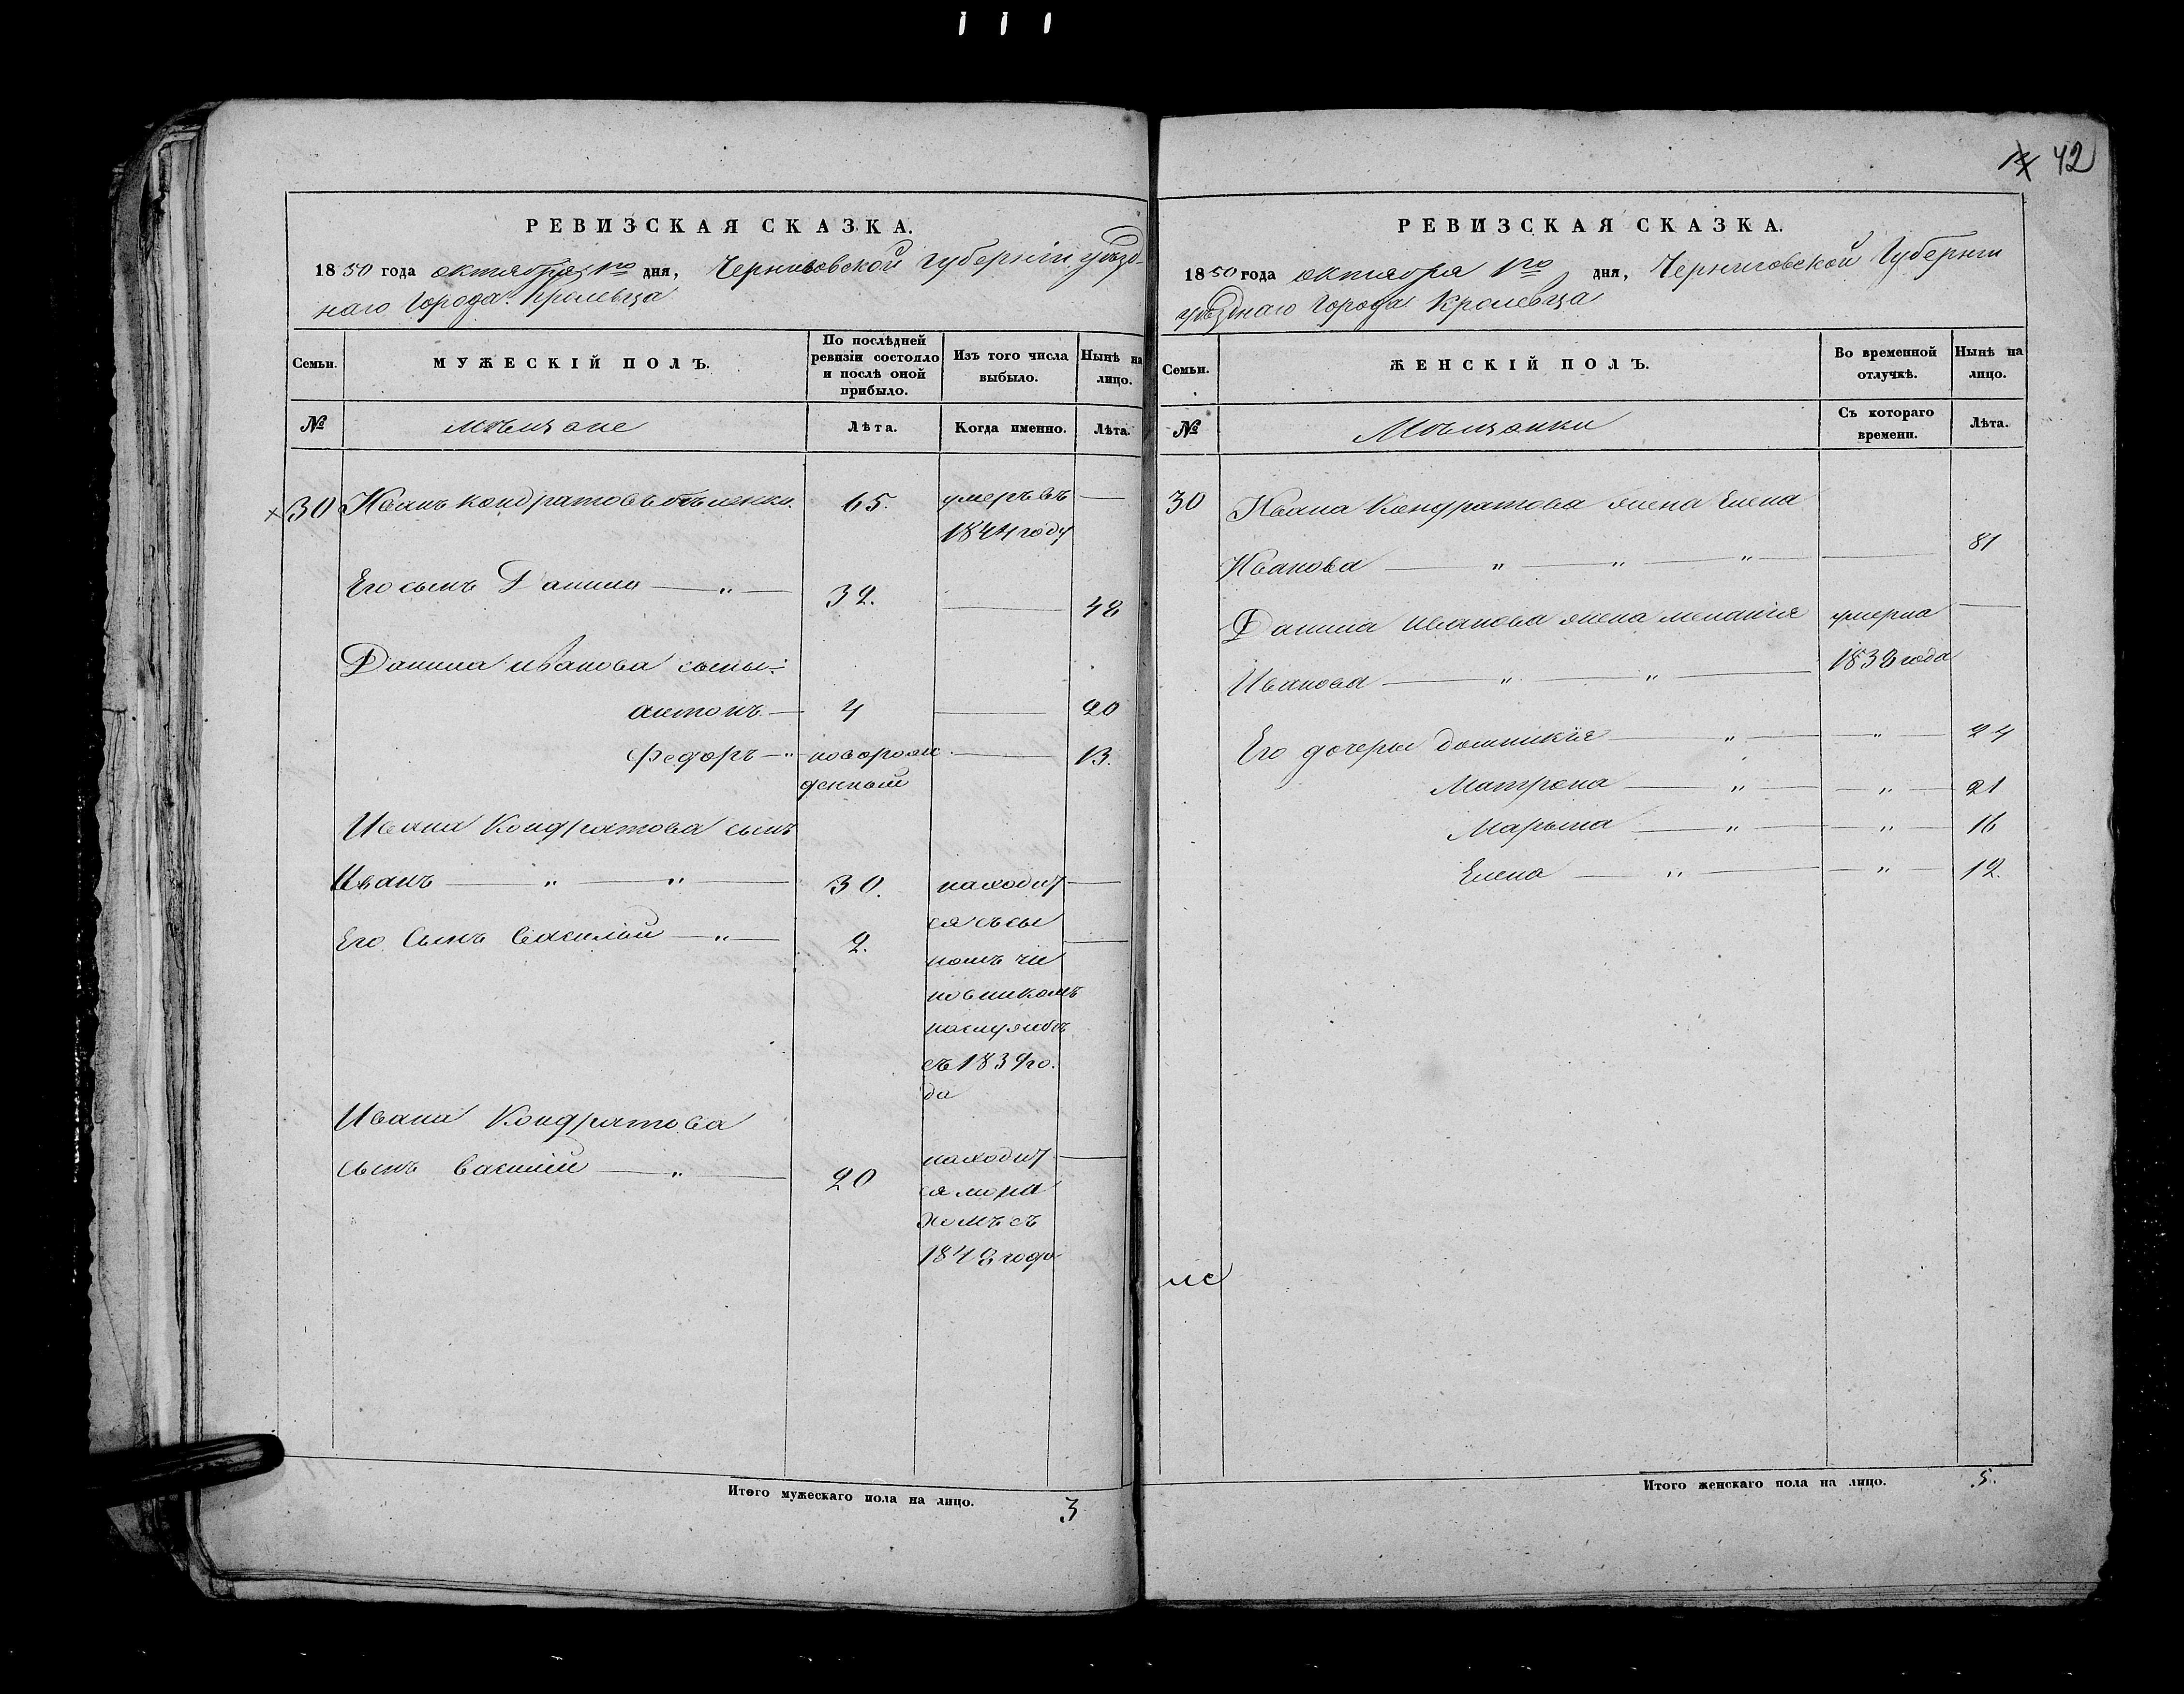 42
РЕВИЗСКАЯ СКАЗКА.
1850 года октября 1го дня, Черниговской губерніи уѣзд-
наго Города Кролевца
Семьи.
МУЖЕСКІЙ ПОЛЪ.
По послѣдней ревизіи состояло и послѣ оной прибыло.
Изъ того числа выбыло.
Нынѣ на лицо.
№
мѣщане
Лѣта.
Когда именно.
Лѣта.
30 Иванъ Кондратовъ 65. умеръ въ —
1844 году
Его сынъ Данило — " — 32. — 48
Данила Иванова сыны:
антонъ — 4 — 20
Федоръ — " — новорож — 13.
денный
Ивана Кондратова сынъ
Иванъ — " — " — 30. находит —
Его Сынъ Василій — " — 2. ся съ сы —
номъ чи
новникомъ
на службѣ
съ 1839 го.
да
Ивана Кондратова
сынъ Василій — " — 20 находит —
ся мона
хомъ съ
1842 года
Итого мужескаго пола на лицо. 3
РЕВИЗСКАЯ СКАЗКА.
1850 года октября 1го дня, Черниговской Губерніи
уѣзднаго Города Кролевца
Семьи.
ЖЕНСКІЙ ПОЛЪ.
Во временной отлучкѣ.
Нынѣ на лицо.
№
Мѣщанки
Съ котораго времени.
Лѣта.
30 Ивана Кондратова жена Елена
Иванова — " — " — " — — 81
Данила Иванова жена меланія умерла —
Иванова — " — " — 1838 года
Его дочери домникія — " — — " — 24
Матрона — " — — " — 21
Марьина — " — — " — 16
Елена — " — — " — 12.
ие
Итого женскаго пола на лицо. 5.